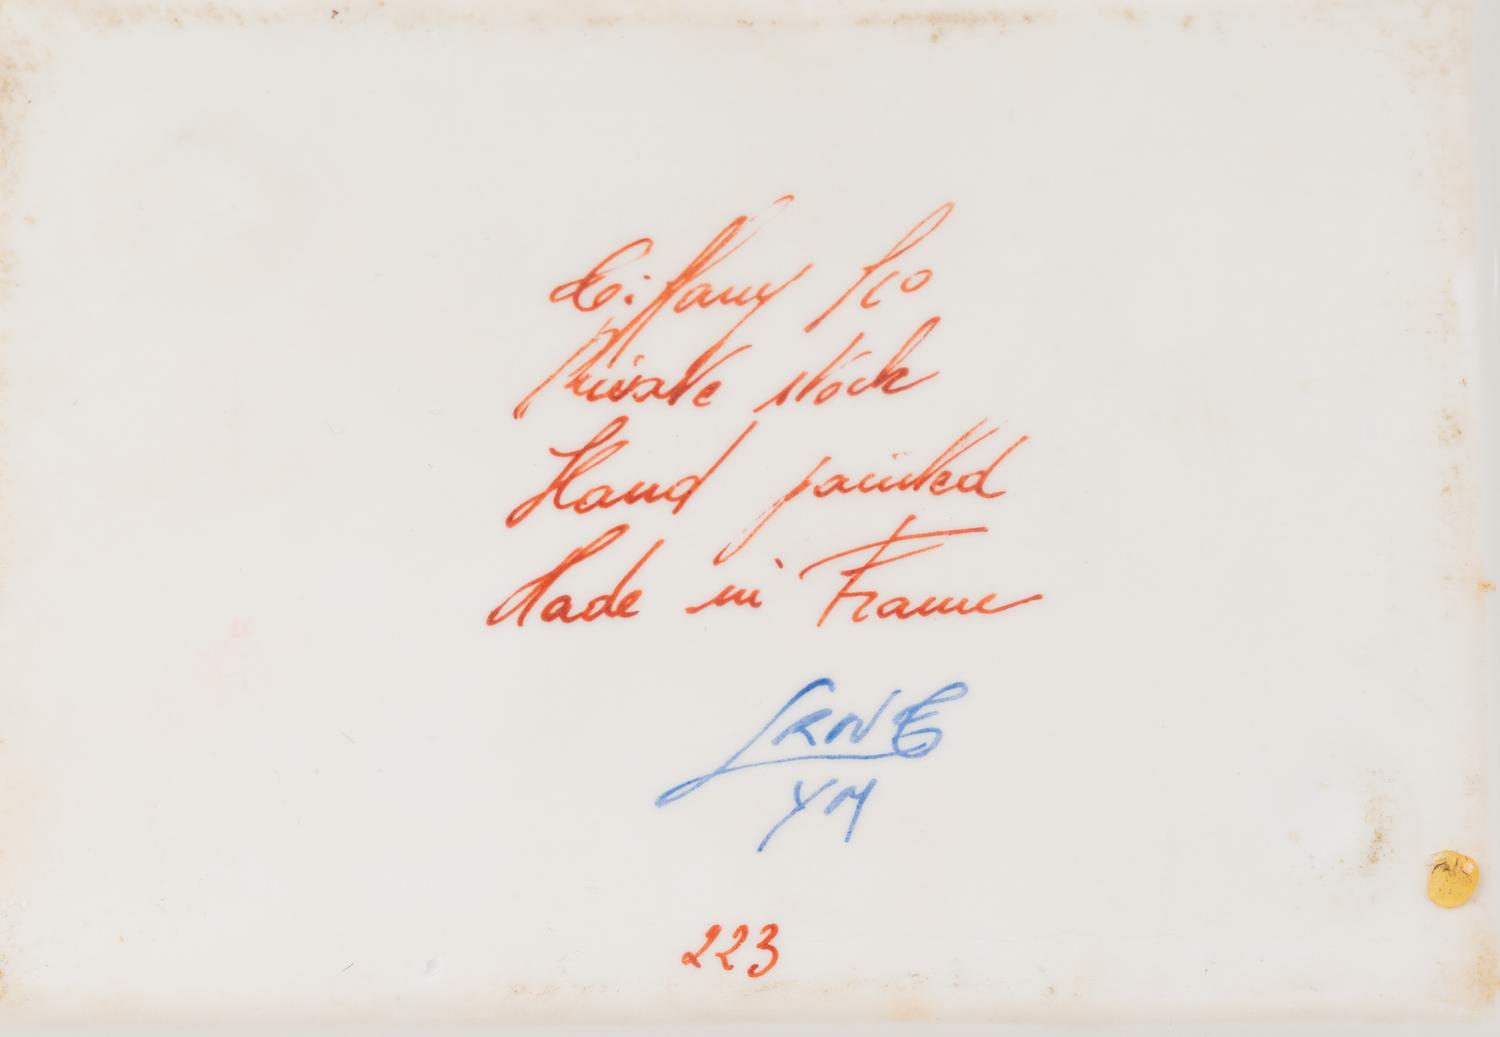 Tiffany & Co
Private stock
Hand painted
Made in France
YM
223